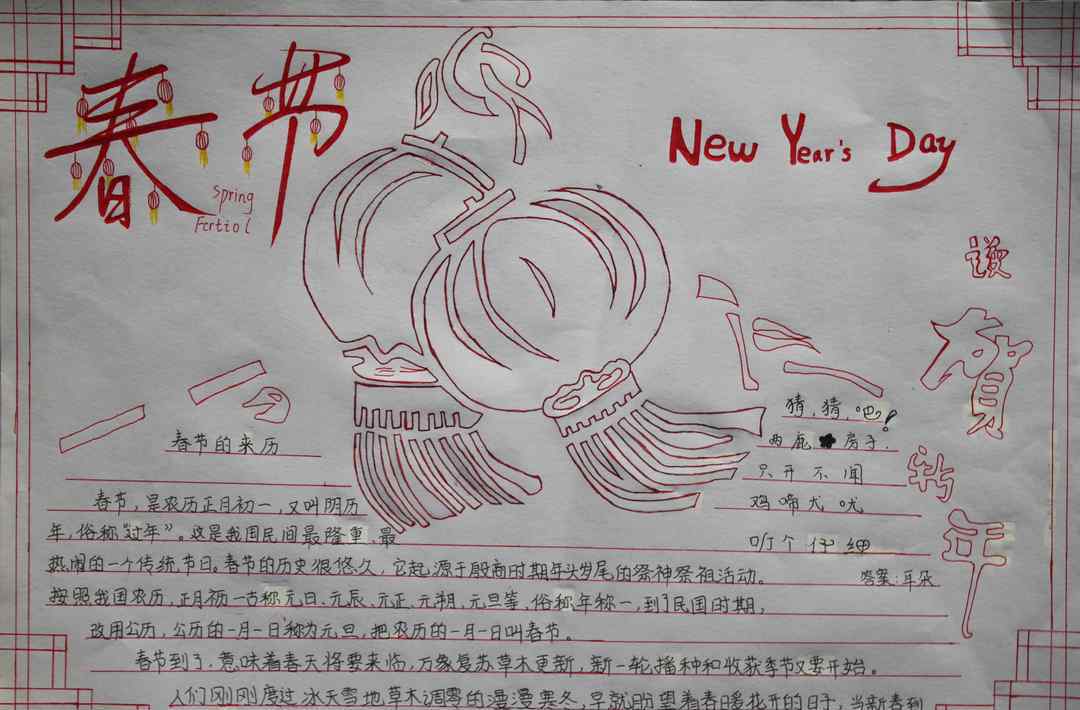 春节
Spring
Fertiol
New Year's Day
谨
贺
新
年
春节的来历
春节，是农历正月初一，又叫阴历
年，俗称"过年"。这是我国民间最隆重、最
热闹的一个传统节日。春节的历史很悠久，它起源于殷商时期年头岁尾的祭神祭祖活动。
按照我国农历，正月初一古称元日、元辰、元正、元朔、元旦等，俗称年称一，到了民国时期，
改用公历，公历的一月一日称为元旦，把农历的一月一日叫春节。
春节到了，意味着春天将要来临，万象复苏草木更新，新一轮播种和收获季节又要开始。
人们刚刚度过冰天雪地草木凋零的漫漫寒冬，早就盼望着春暖花开的日子，当新春到
猜，猜，吧！
两扇房子，
只开不闻
鸡啼犬吠
叮个仔细
答案：耳朵